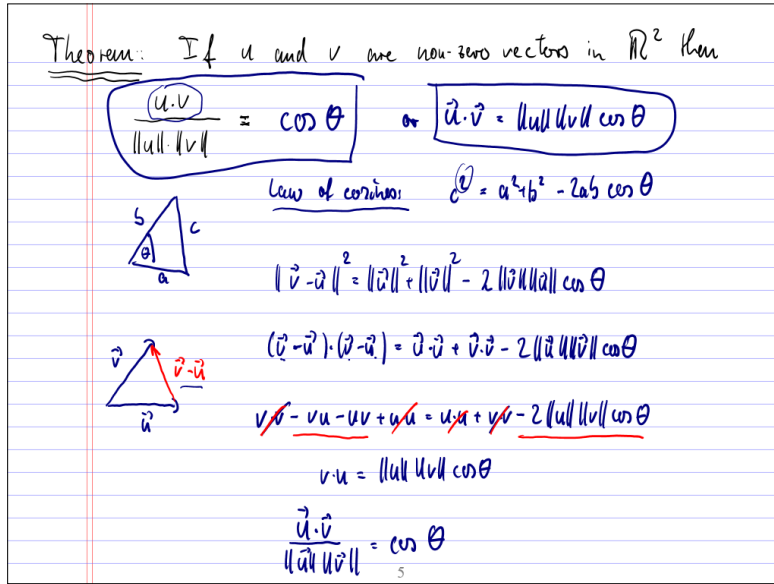 Theorem: If u and v are non-zero vectors in ℝ² then
u·v / ||u||·||v|| = cos θ or u⃗·v⃗ = ||u|| ||v|| cos θ
Law of cosines c² = a²+b² - 2ab cos θ
b c
θ
a
||v⃗-u⃗||² = ||u⃗||² + ||v⃗||² - 2||v⃗|| ||u⃗|| cos θ
(v⃗-u⃗)·(v⃗-u⃗) = u⃗·u⃗ + v⃗·v⃗ - 2||u⃗|| ||v⃗|| cos θ
v⃗ v⃗-u⃗
u⃗
v·v - vu - uv + u·u = u·u + v·v - 2||u|| ||v|| cos θ
v·u = ||u|| ||v|| cos θ
u⃗·v⃗ / ||u⃗|| ||v⃗|| = cos θ
5